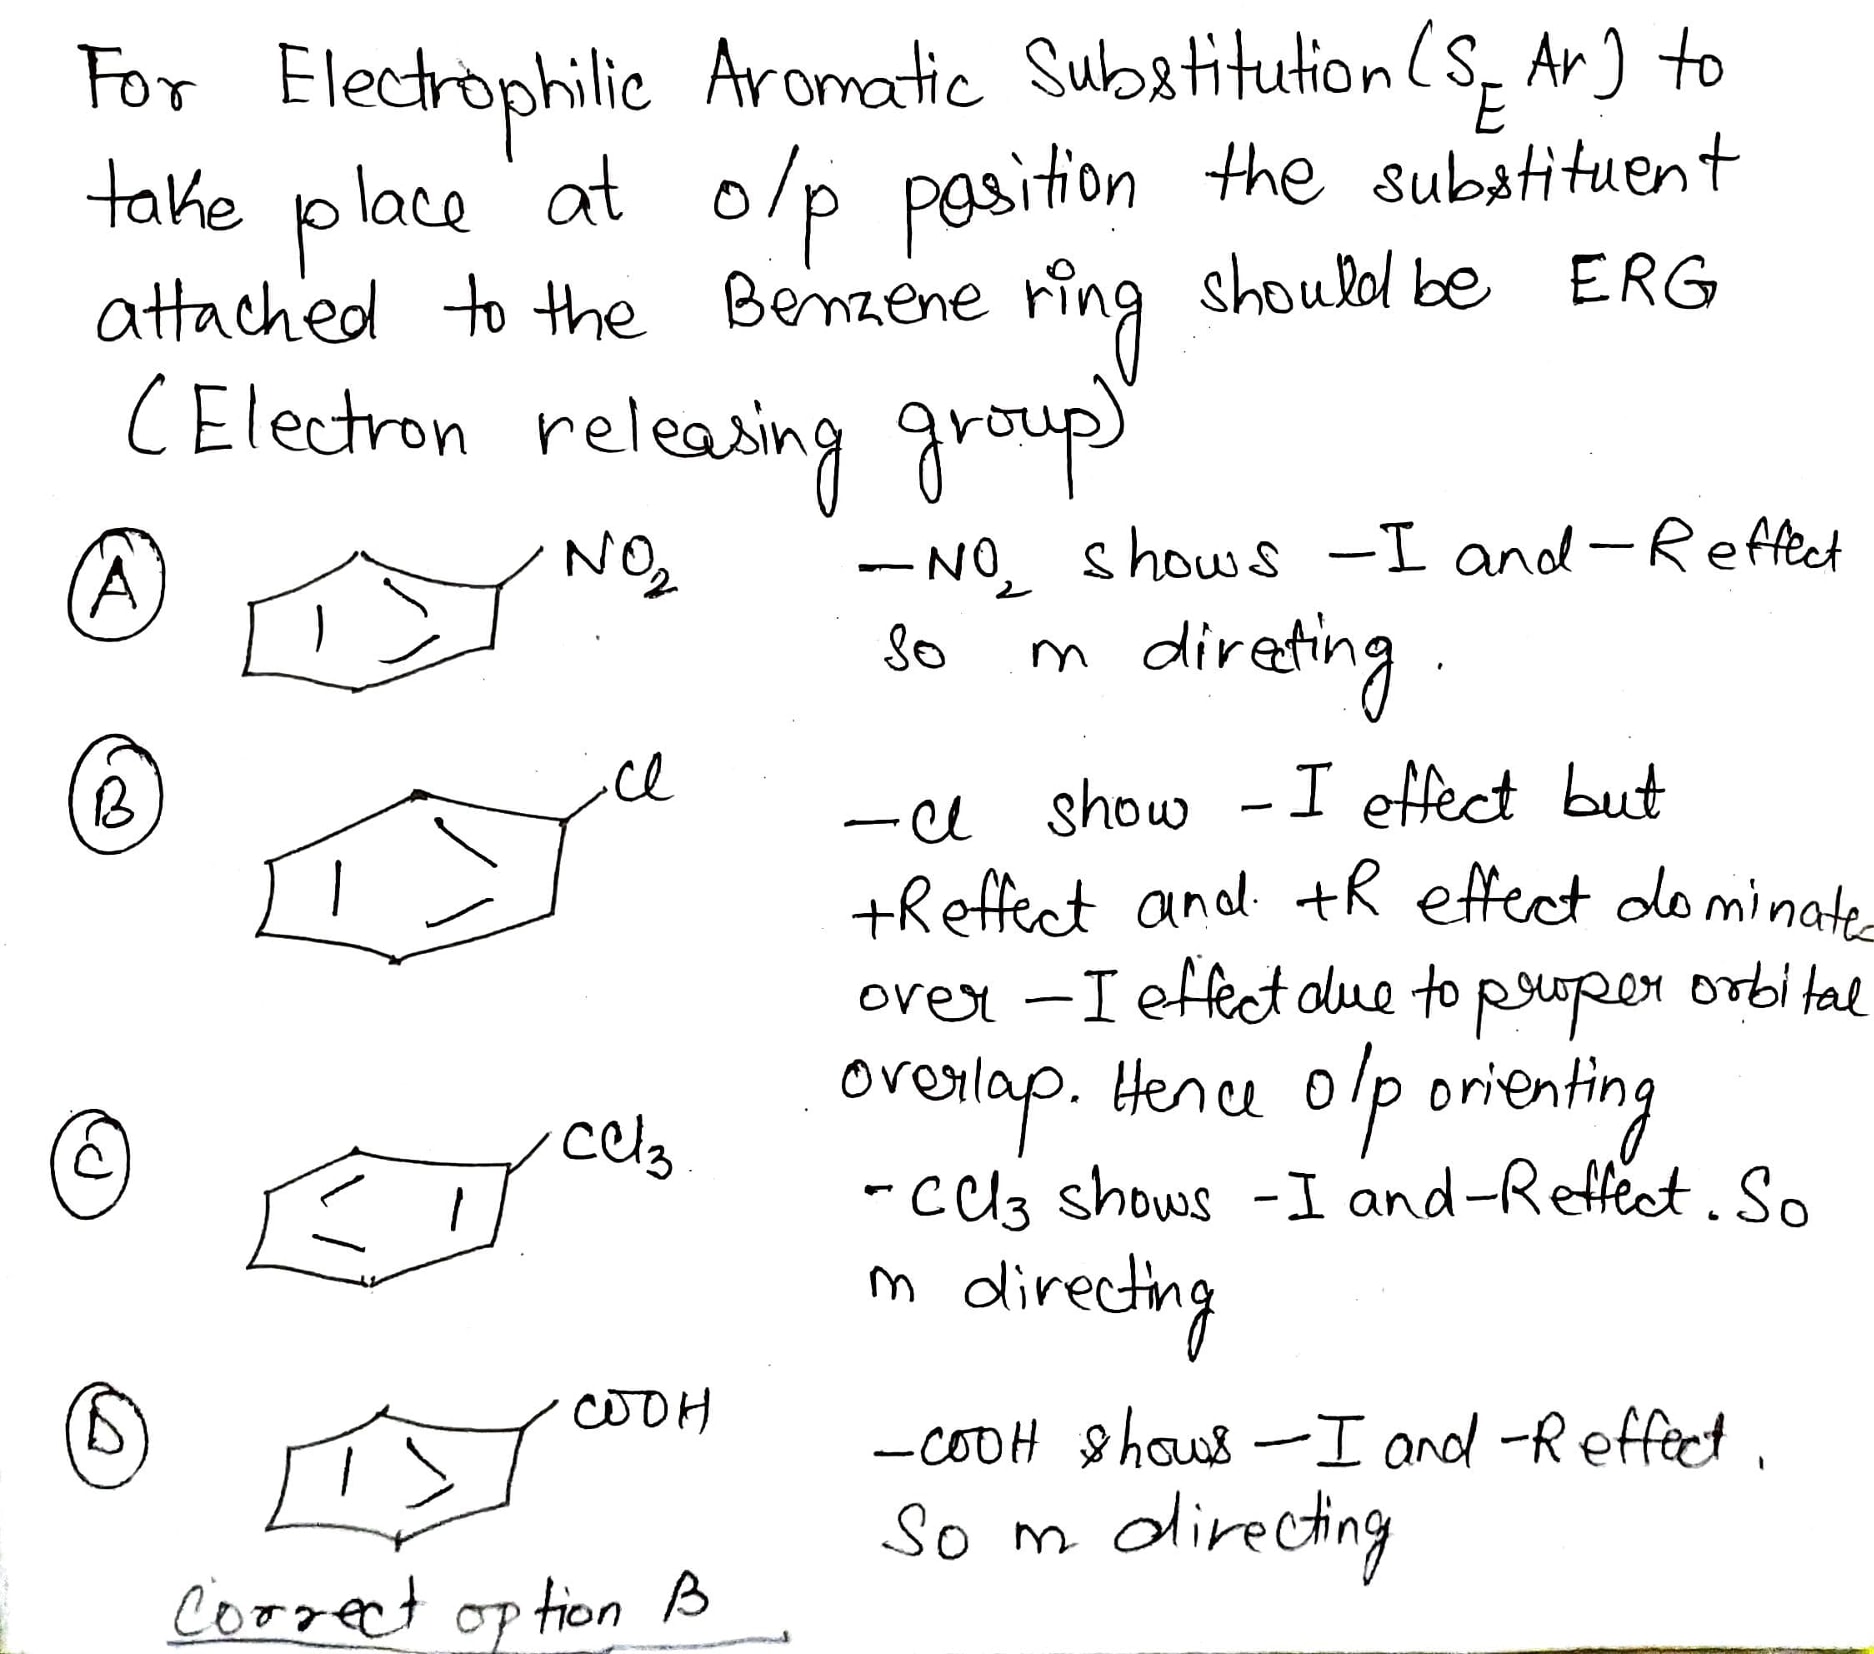 For Electrophilic Aromatic Substitution (S_E Ar) to
take place at o/p position the substituent
attached to the Benzene ring should be ERG
(Electron releasing group)
A NO₂ —NO₂ shows —I and —R effect
So m directing.
B Cl —Cl show -I effect but
+R effect and +R effect dominates
over —I effect due to proper orbital
overlap. Hence o/p orienting
C CCl₃ -CCl₃ shows -I and -R effect. So
m directing
D COOH —COOH shows —I and -R effect.
So m directing
Correct option B